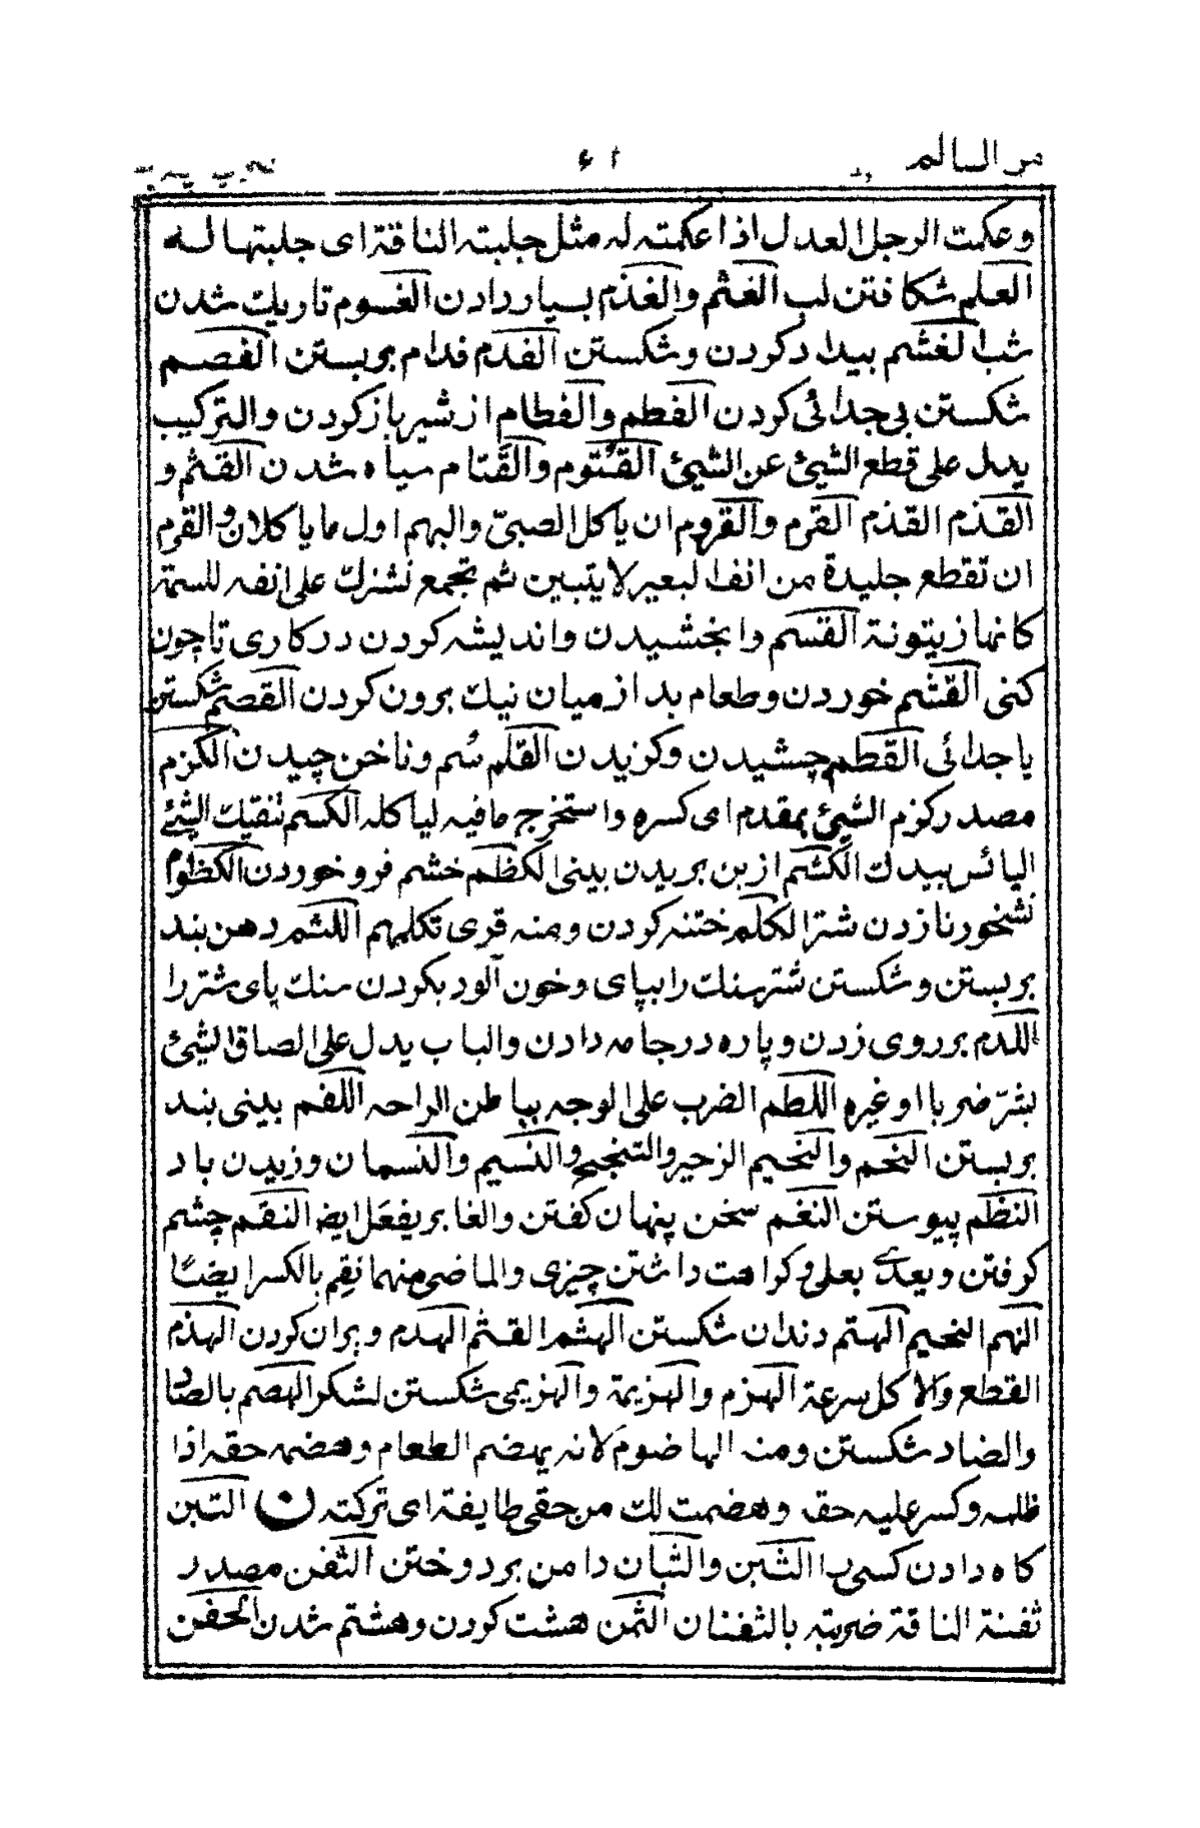 من السالم ٤١
وعكمت الرجل العدل اذا عكمته له مثل جلبته الناقة اى جلبتها له
العلم شكافتن لب الغثم والغذم بسيار دادن الغسوم تاريك شدن
شب الغشم بيداد كردن وشكستن الفدم فدام بربستن الفصم
شكستن بى جدائى كردن الفطم والفطام از شير باز كردن والتركيب
يدل على قطع الشيئ عن الشيئ القتوم والقتام سياه شدن القثم و
القذم القذم القرم والقروم ان ياكل الصبىّ والبهم اول ما ياكلان والقرم
ان تقطع جليدة من انف البعير لا يتبين ثم تجمع نشزك على انفه للسمة
كانها زيتونة القسم وا بخشيدن وانديشه كردن در كارى تا چون
كنى القشم خوردن وطعام بد از ميان نيك برون كردن القصم شكستن
يا جدائى القطم چشيدن وكزيدن القلم سُم وناخن چيدن الكزم
مصدر كزم الشيئ بمقدم اى كسره واستخرج ما فيه لياكله الكسم تنقيتك الشئ
اليائس بيدك الكشم از بن بريدن بينى الكظم خشم فرو خوردن الكظوم
نشخور نازدن شتر الكلم ختنه كردن ومنه قرى تكلمهم اللثم دهن بند
بربستن وشكستن شتر سنك را بپاى وخون آلود بكردن سنك پاى شتر را
اللدم بر روى زدن و پاره در جامه دادن والباب يدل على الصاق الشيئ
بشرّ ضربا او غيره اللطم الضرب على الوجه بباطن الراحه اللفم بينى بند
بربستن النحم والنحيم الزحير والتنحنح والنسيم والنسمان وزيدن باد
النظم پيوستن النغم سخن پنهان كفتن والغابر يفعل ايض النقم چشم
كرفتن ويعدى بعلى وكراهت داشتن چيزى والماضى منهما نقِم بالكسر ايضًا
النهم النحيم الهتم دندان شكستن الهشم القثم الهدم ويران كردن الهذم
القطع والاكل بسرعة الهزم والهزيمة والهزيمى شكستن لشكر الهصم بالصاد
والضاد شكستن ومنه الهاضوم لانه يهضم الطعام وهضمه حقه اذا
ظلمه وكسر عليه حقه وهضمت لك من حقى طايفة اى تركته ن التبن
كاه دادن كسى را الثبن والثبان دامن بر دوختن الثفن مصدر
ثفنة الناقة ضربته بالثفنان الثمن هشت كردن وهشتم شدن الحفن